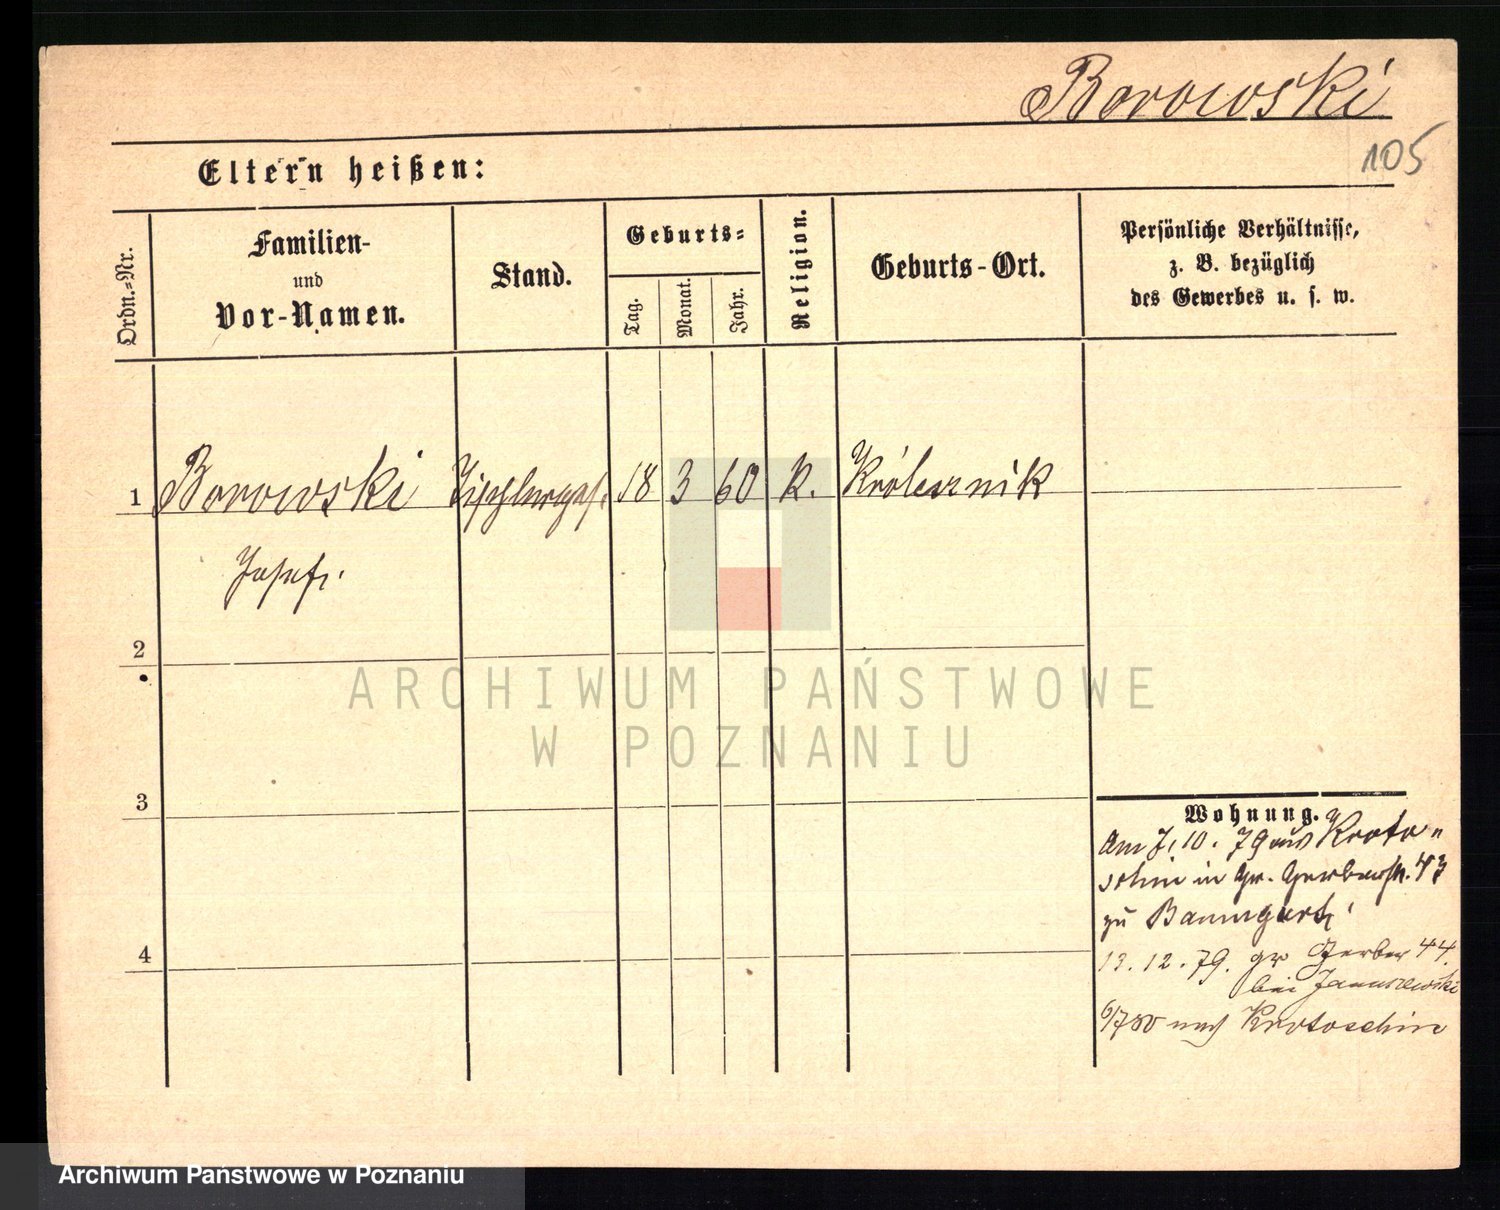 Borowski
105
Eltern heißen:
Ordn.-Nr.
Familien-
und
Vor-Namen.
Stand.
Geburts-
Tag.
Monat.
Jahr.
Religion.
Geburts-Ort.
Persönliche Verhältnisse,
z. B. bezüglich
des Gewerbes u. s. w.
1 Borowski Tischlerges. 18 3 60 K.
Josef.
2
3
4
Wohnung.
Am 7.10.79 aus Kroto-
schin in Gr. Gerberstr. 43
zu Baumgart
13.12.79. gr Gerber 44.
bei Januszewski
6/7 80 nach Krotoschin
ARCHIWUM PAŃSTWOWE
W POZNANIU
Archiwum Państwowe w Poznaniu